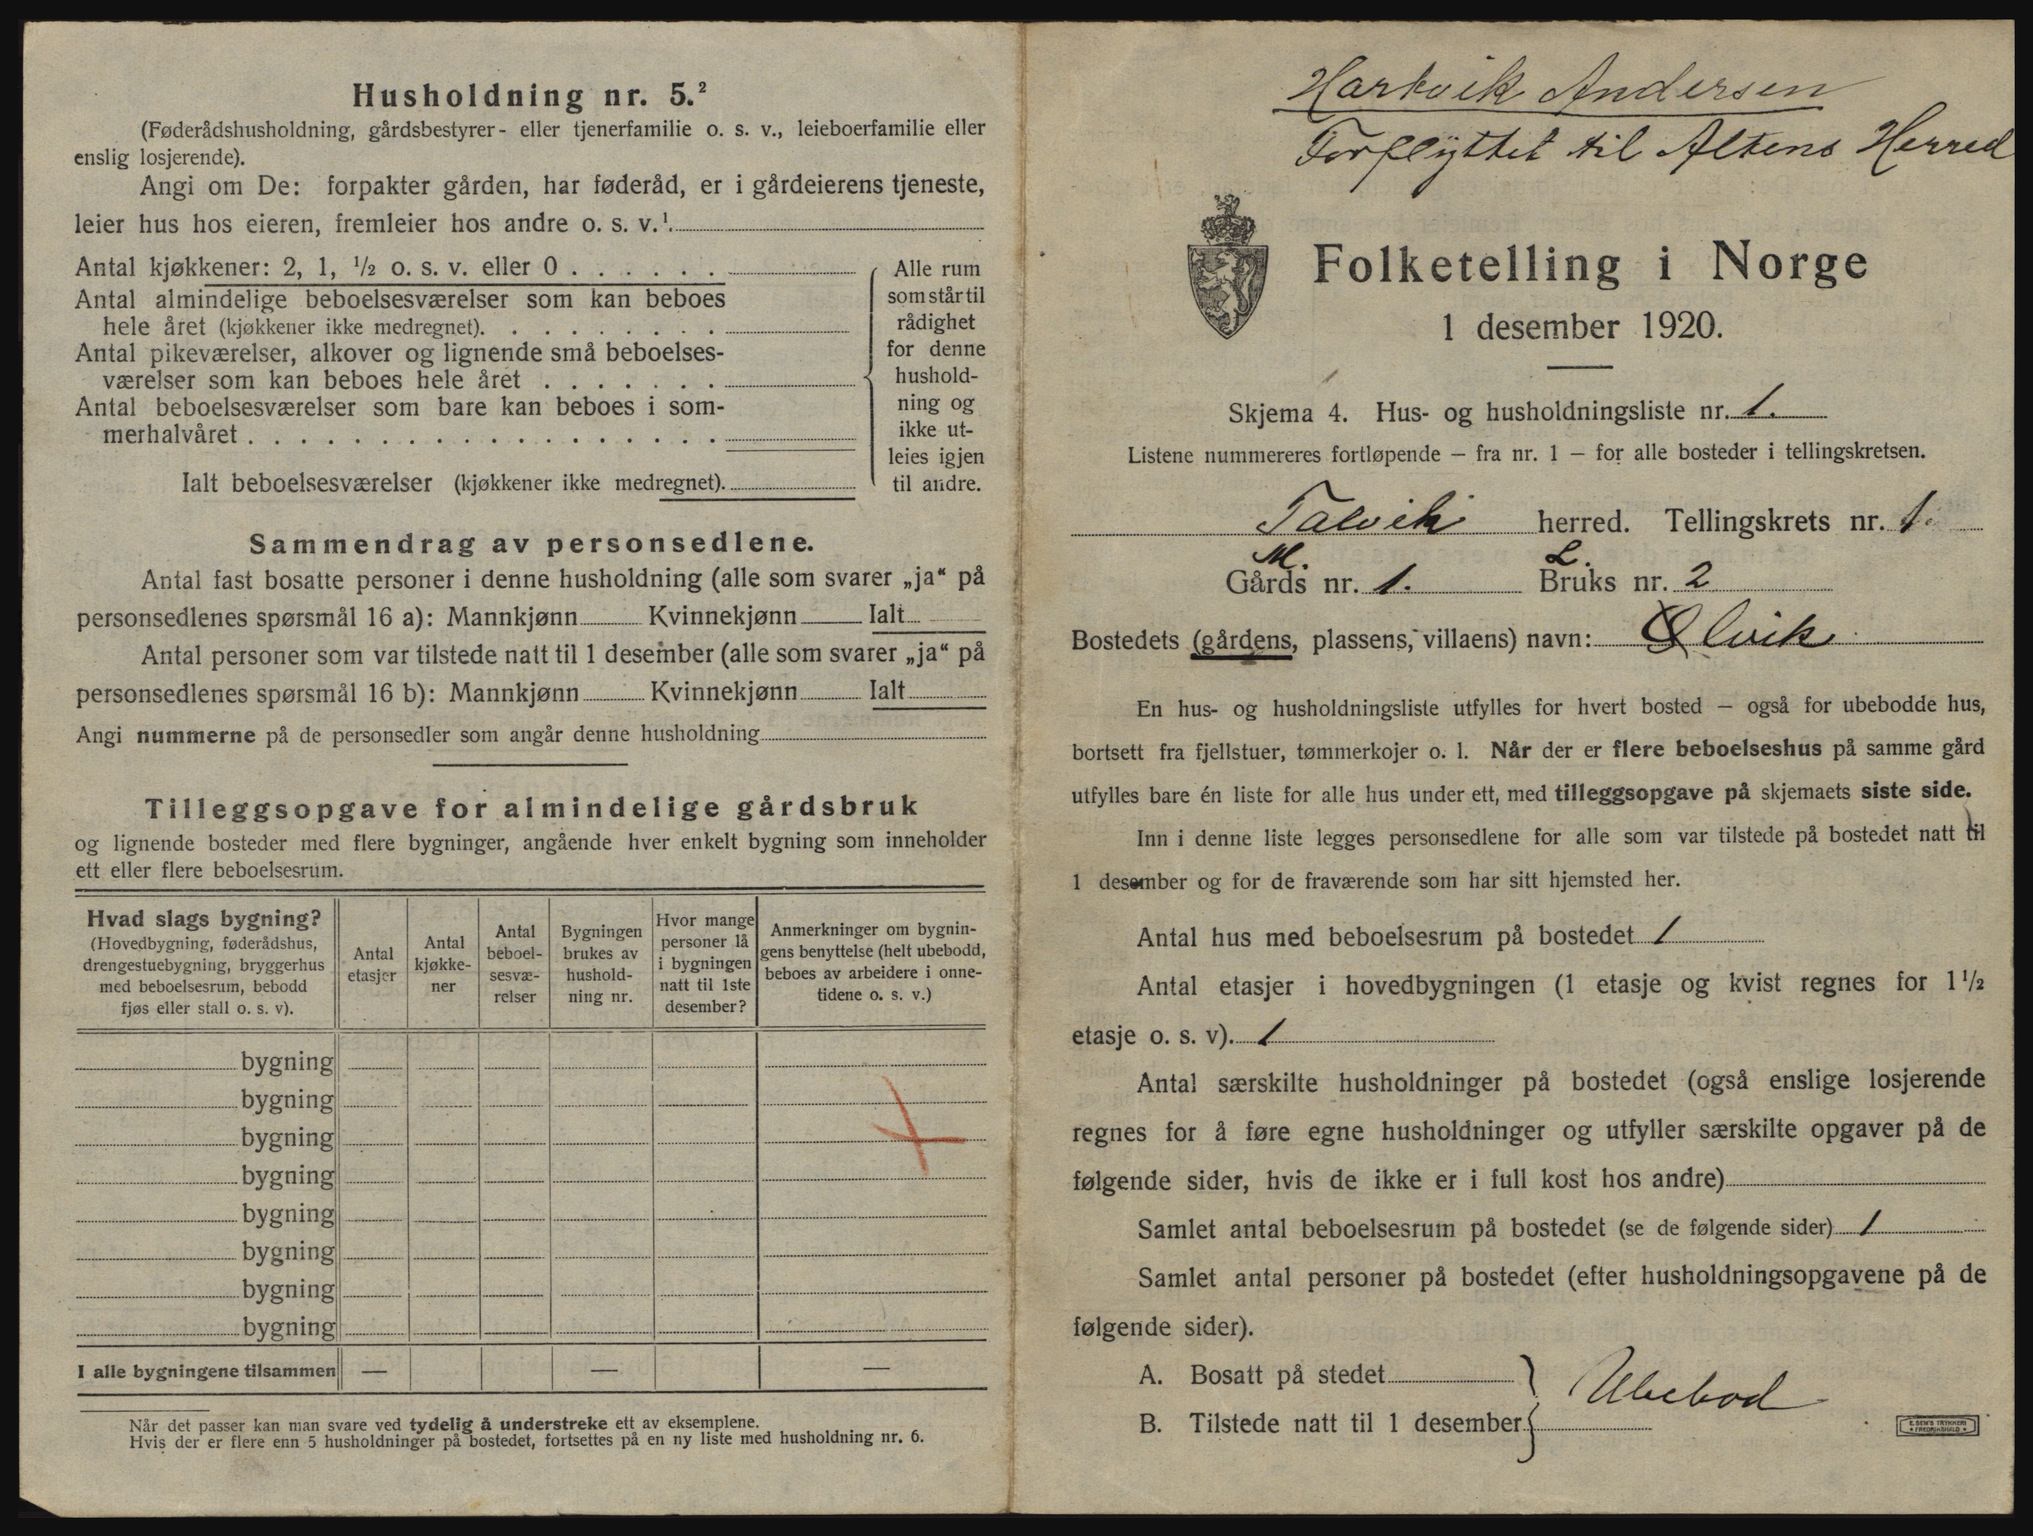 Husholdning nr. 5.²
(Føderådshusholdning, gårdsbestyrer- eller tjenerfamilie o. s. v., leieboerfamilie eller
enslig losjerende).
Angi om De: forpakter gården, har føderåd, er i gårdeierens tjeneste,
leier hus hos eieren, fremleier hos andre o. s. v.¹
Antal kjøkkener: 2, 1, ½ o. s. v. eller 0 . . . . . .
Antal almindelige beboelsesværelser som kan beboes
hele året (kjøkkener ikke medregnet). . . . . . . . .
Antal pikeværelser, alkover og lignende små beboelses-
værelser som kan beboes hele året . . . . . . .
Antal beboelsesværelser som bare kan beboes i som-
merhalvåret . . . . . . . . . . . . . . . . . .
Ialt beboelsesværelser (kjøkkener ikke medregnet).
Alle rum
som står til
rådighet
for denne
hushold-
ning og
ikke ut-
leies igjen
til andre.
Sammendrag av personsedlene.
Antal fast bosatte personer i denne husholdning (alle som svarer „ja“ på
personsedlenes spørsmål 16 a): Mannkjønn Kvinnekjønn Ialt
Antal personer som var tilstede natt til 1 desember (alle som svarer „ja“ på
personsedlenes spørsmål 16 b): Mannkjønn Kvinnekjønn Ialt
Angi nummerne på de personsedler som angår denne husholdning
Tilleggsopgave for almindelige gårdsbruk
og lignende bosteder med flere bygninger, angående hver enkelt bygning som inneholder
ett eller flere beboelsesrum.
Hvad slags bygning?
(Hovedbygning, føderådshus,
drengestuebygning, bryggerhus
med beboelsesrum, bebodd
fjøs eller stall o. s. v).
Antal
etasjer
Antal
kjøkke-
ner
Antal
beboel-
sesvæ-
relser
Bygningen
brukes av
hushold-
ning nr.
Hvor mange
personer lå
i bygningen
natt til 1ste
desember?
Anmerkninger om bygnin-
gens benyttelse (helt ubebodd,
beboes av arbeidere i onne-
tidene o. s. v.)
bygning
bygning
bygning
bygning
bygning
bygning
bygning
bygning
I alle bygningene tilsammen — — —
Når det passer kan man svare ved tydelig å understreke ett av eksemplene.
Hvis der er flere enn 5 husholdninger på bostedet, fortsettes på en ny liste med husholdning nr. 6.
Hartvik Andersen
Forflyttet til Altens Herred
Folketelling i Norge
1 desember 1920.
Skjema 4. Hus- og husholdningsliste nr. 1.
Listene nummereres fortløpende — fra nr. 1 — for alle bosteder i tellingskretsen.
Talvik herred. Tellingskrets nr. 1.
M. L.
Gårds nr. 1. Bruks nr. 2
Bostedets (gårdens, plassens, villaens) navn: Olvik
En hus- og husholdningsliste utfylles for hvert bosted — også for ubebodde hus,
bortsett fra fjellstuer, tømmerkojer o. l. Når der er flere beboelseshus på samme gård
utfylles bare én liste for alle hus under ett, med tilleggsopgave på skjemaets siste side.
Inn i denne liste legges personsedlene for alle som var tilstede på bostedet natt til
1 desember og for de fraværende som har sitt hjemsted her.
Antal hus med beboelsesrum på bostedet 1
Antal etasjer i hovedbygningen (1 etasje og kvist regnes for 1½
etasje o. s. v). 1
Antal særskilte husholdninger på bostedet (også enslige losjerende
regnes for å føre egne husholdninger og utfyller særskilte opgaver på de
følgende sider, hvis de ikke er i full kost hos andre)
Samlet antal beboelsesrum på bostedet (se de følgende sider) 1
Samlet antal personer på bostedet (efter husholdningsopgavene på de
følgende sider).
A. Bosatt på stedet
B. Tilstede natt til 1 desember
Ubebod
E. SEM'S TRYKKERI
FREDRIKSHALD